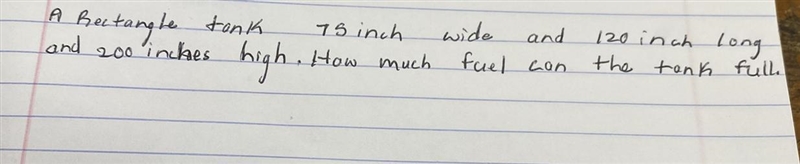 A Rectangle tank 75 inch wide and 120 inch long
and 200 inches high. How much fuel can the tank full.